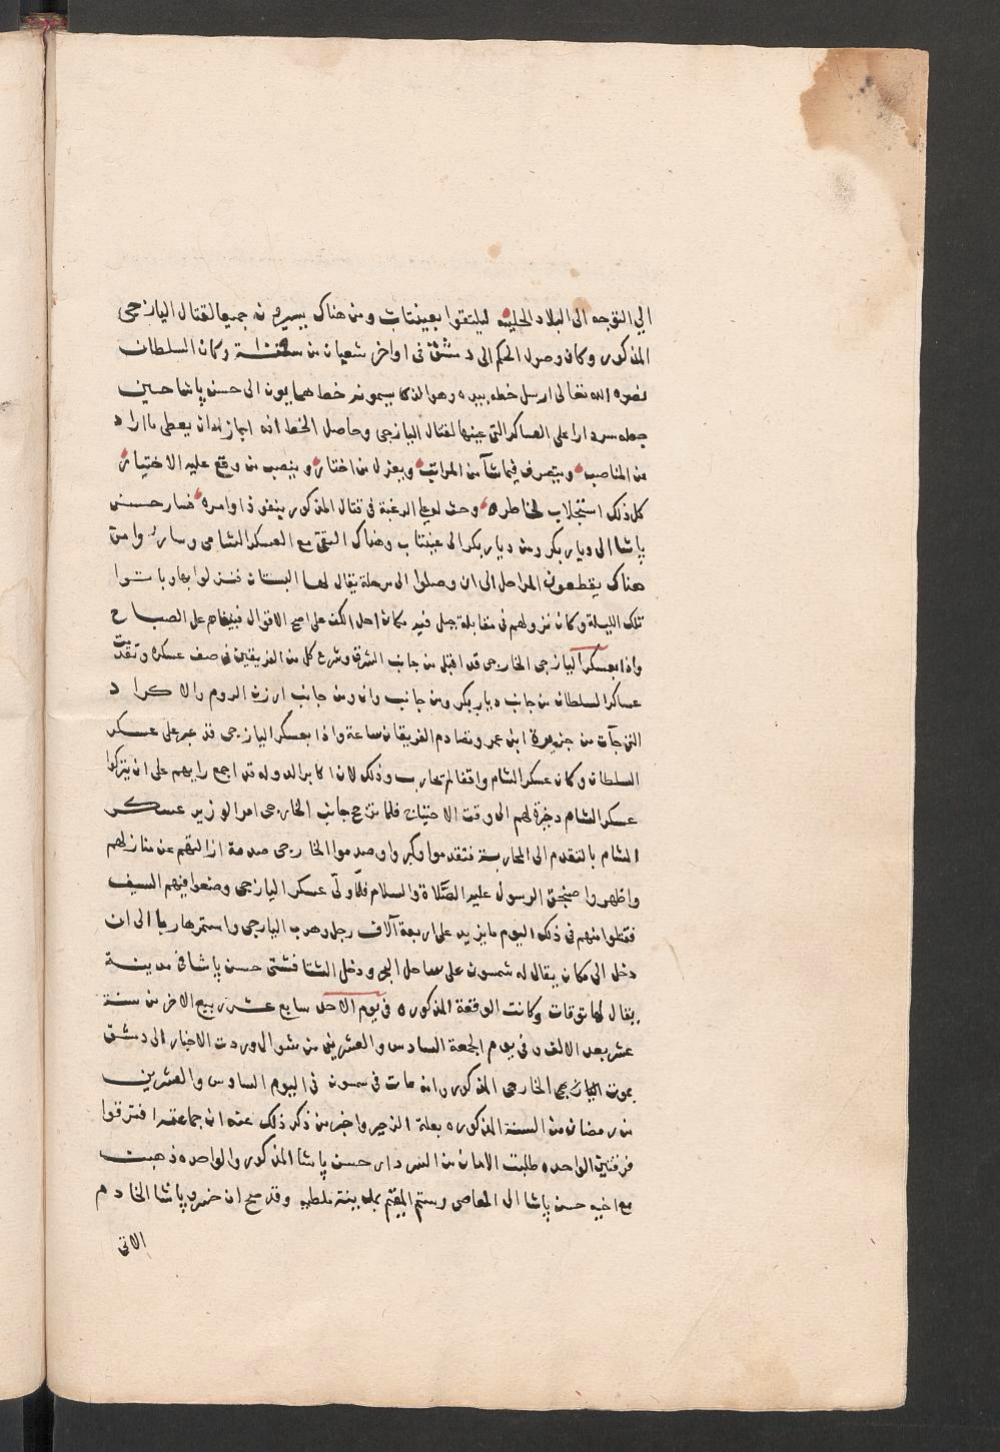 الي التوجه الى البلاد الحلبيه ليلتقوا بعينتاب ومن هناك يسيرون جميعا لقتال اليازجى
المذكور وكان وصول الحكم الى دمشق في اواخر شعبان من سنة وكان السلطان
نصره الله تعالى ارسل خطه بيده وهو الذى يسمونه خط همايون الى حسن پاشا حين
جعله سردارا على العساكر التى عينها لقتال اليازجى وحاصل الخط انه اجازه ان يعطى ما اراد
من المناصب ويتصرف فيما شآ من المراتب ويعزل من اختار وينصب من وقع عليه الاختيار
كل ذلك استجلاب لخاطره وحث له على الرغبة فى قتال المذكور بنفوذ اوامره فسار حسن
پاشا الى ديار بكر ومن ديار بكر الى عينتاب وهناك التقى مع العسكر الشامى وساروا من
هناك يقطعون المراحل الى ان وصلوا الى مرحلة يقال لها البستان فنزلوا بها وباتوا
تلك الليلة وكان نزولهم فى مقابلة جبل فيه مكان اهل الكهف على اصح الاقوال فبينما هم على الصباح
واذا بعسكر اليازجى الخارجى قد اقبل من جانب الشرق وشرع كل من الفريقين فى صف عسكره وتقدمت
عساكر السلطان من جانب ديار بكر ومن جانب وان ومن جانب ارزن الروم والاكراد
التى جآت من جزيرة ابن عمر وتصادم الفريقان ساعة واذا بعسكر اليازجى قد عبر على عسكر
السلطان وكان عسكر الشام واقفا لم يحارب وذلك لان اكابر الدوله قد اجمع رايهم على ان يتركوا
عسكر الشام دخيرة لهم الى وقت الاحتياج فلما ترجح جانب الخارجى امر الوزير عسكر
الشام بالتقدم الى المحاربة فتقدموا وكبروا وصدموا الخارجى صدمة ازالتهم عن منازلهم
واظهروا صنجق الرسول عليه الصلاة والسلام فلا ولى عسكر اليازجى وضعوا فيهم السيف
فقتلوا منهم فى ذلك اليوم ما يزيد على اربعة آلاف رجل وهرب اليازجى واستمر هاربا الى ان
دخل الى مكان يقال له شمسون على ساحل البحر ودخل الشتا فشتى حسن پاشا فى مدينة
يقال لها توقات وكانت الوقعة المذكوره فى يوم الاحد سابع عشر ربيع الاخر من سنة
عشر بعد الالف وفى يوم الجمعة السادس والعشرين من شوال وردت الاخبار الى دمشق
بموت اليازجى الخارجى المذكور وانه مات فى سمسون فى اليوم السادس والعشرين
من رمضان من السنة المذكوره بعلة الزحير واخبر من ذكر ذلك عنه ان جماعته افترقوا
فرقتين الواحده طلبت الامان من السردار حسن پاشا المذكور والواحده ذهبت
مع اخيه حسن پاشا الى العاصى رستم المقيم بمدينة ملطيه وقد صح ان خسرو پاشا الخادم
الاتى